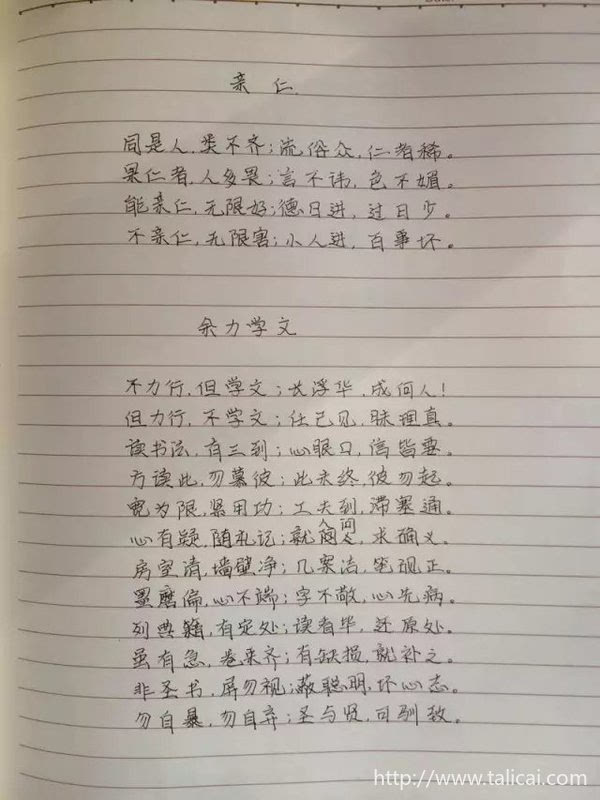 亲仁
同是人，类不齐；流俗众，仁者稀。
果仁者，人多畏；言不讳，色不媚。
能亲仁，无限好；德日进，过日少。
不亲仁，无限害；小人进，百事坏。
余力学文
不力行，但学文；长浮华，成何人！
但力行，不学文；任己见，昧理真。
读书法，有三到；心眼口，信皆要。
方读此，勿慕彼；此未终，彼勿起。
宽为限，紧用功；工夫到，滞塞通。
心有疑，随札记；就人问，求确义。
房室清，墙壁净；几案洁，笔砚正。
墨磨偏，心不端；字不敬，心先病。
列典籍，有定处；读看毕，还原处。
虽有急，卷束齐；有缺损，就补之。
非圣书，屏勿视；蔽聪明，坏心志。
勿自暴，勿自弃；圣与贤，可驯致。
http://www.talicai.com